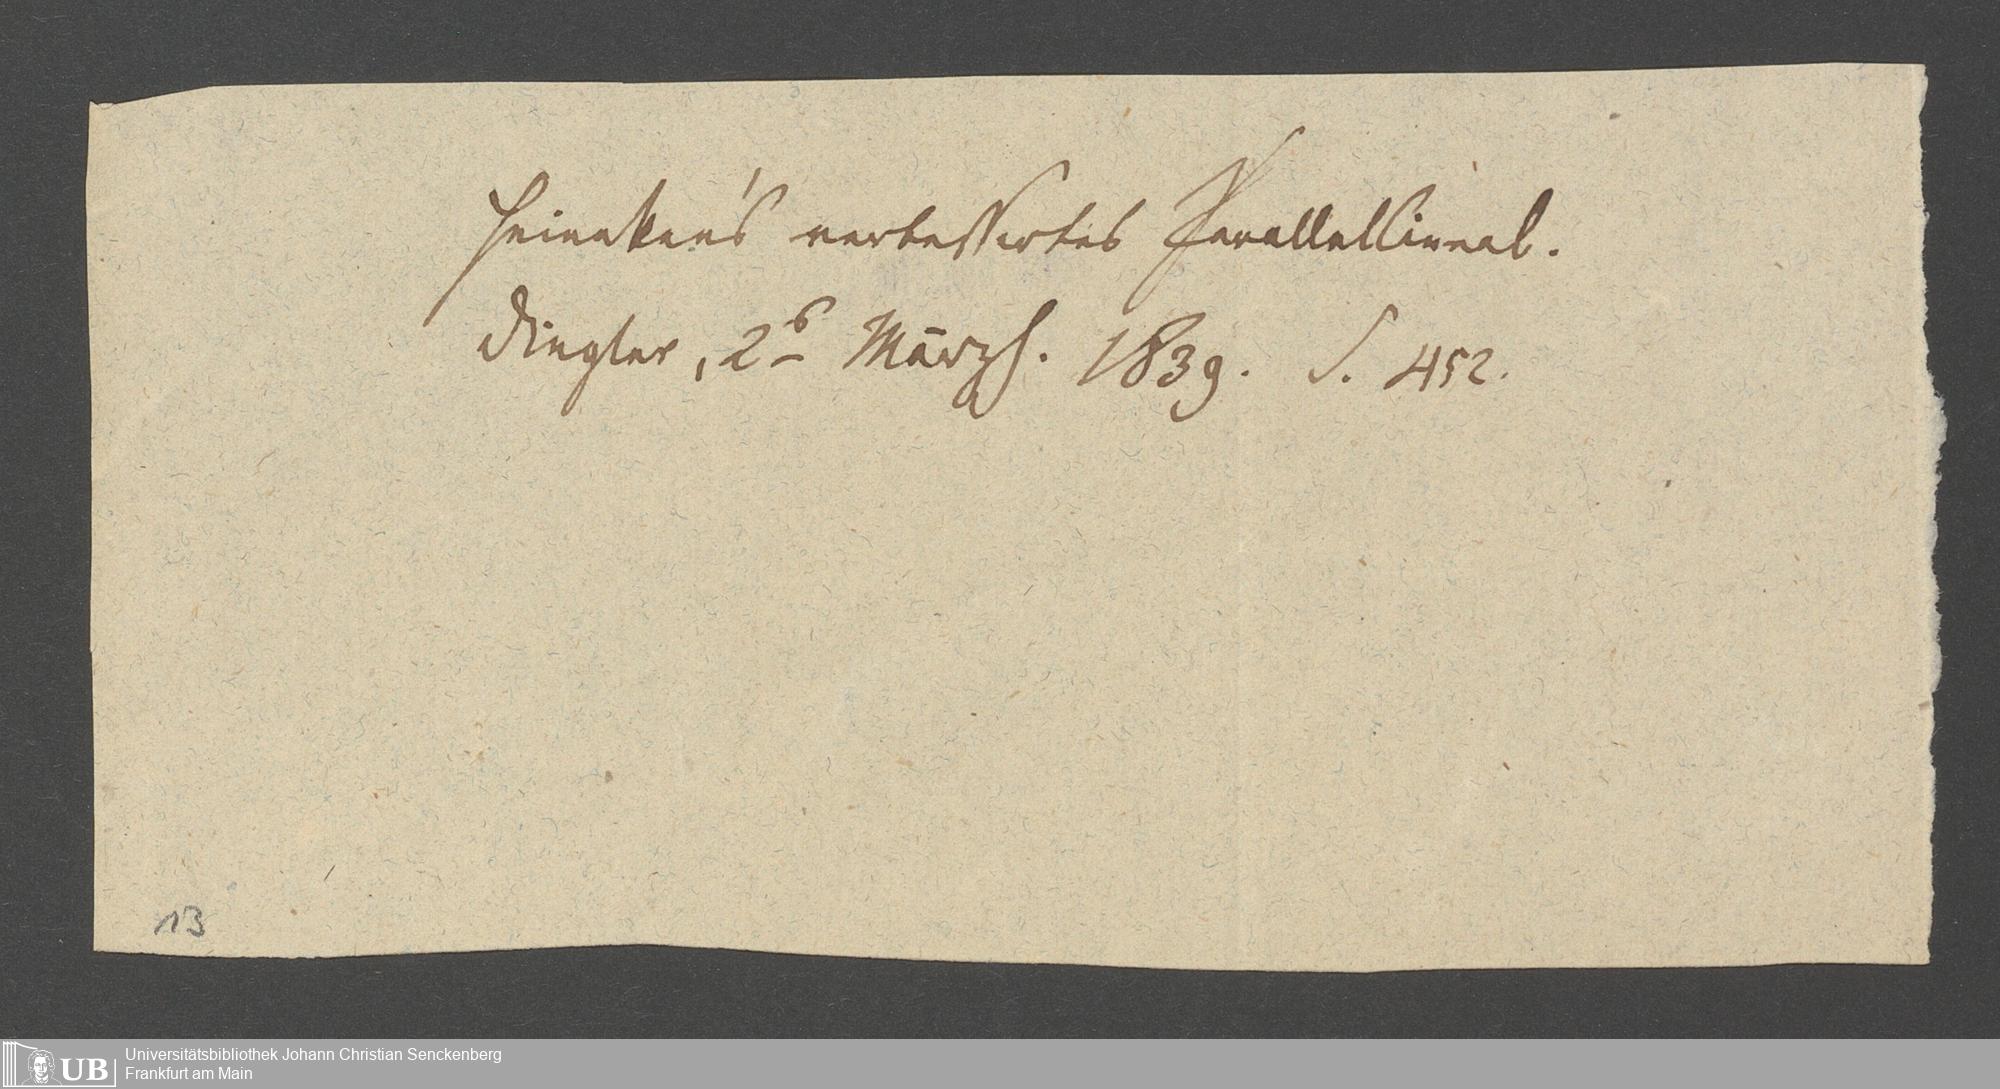 Heineken's verbessertes Parallellineal.
Dingler, 2s Märzh. 1839. S. 452.
13
UB
Universitätsbibliothek Johann Christian Senckenberg
Frankfurt am Main